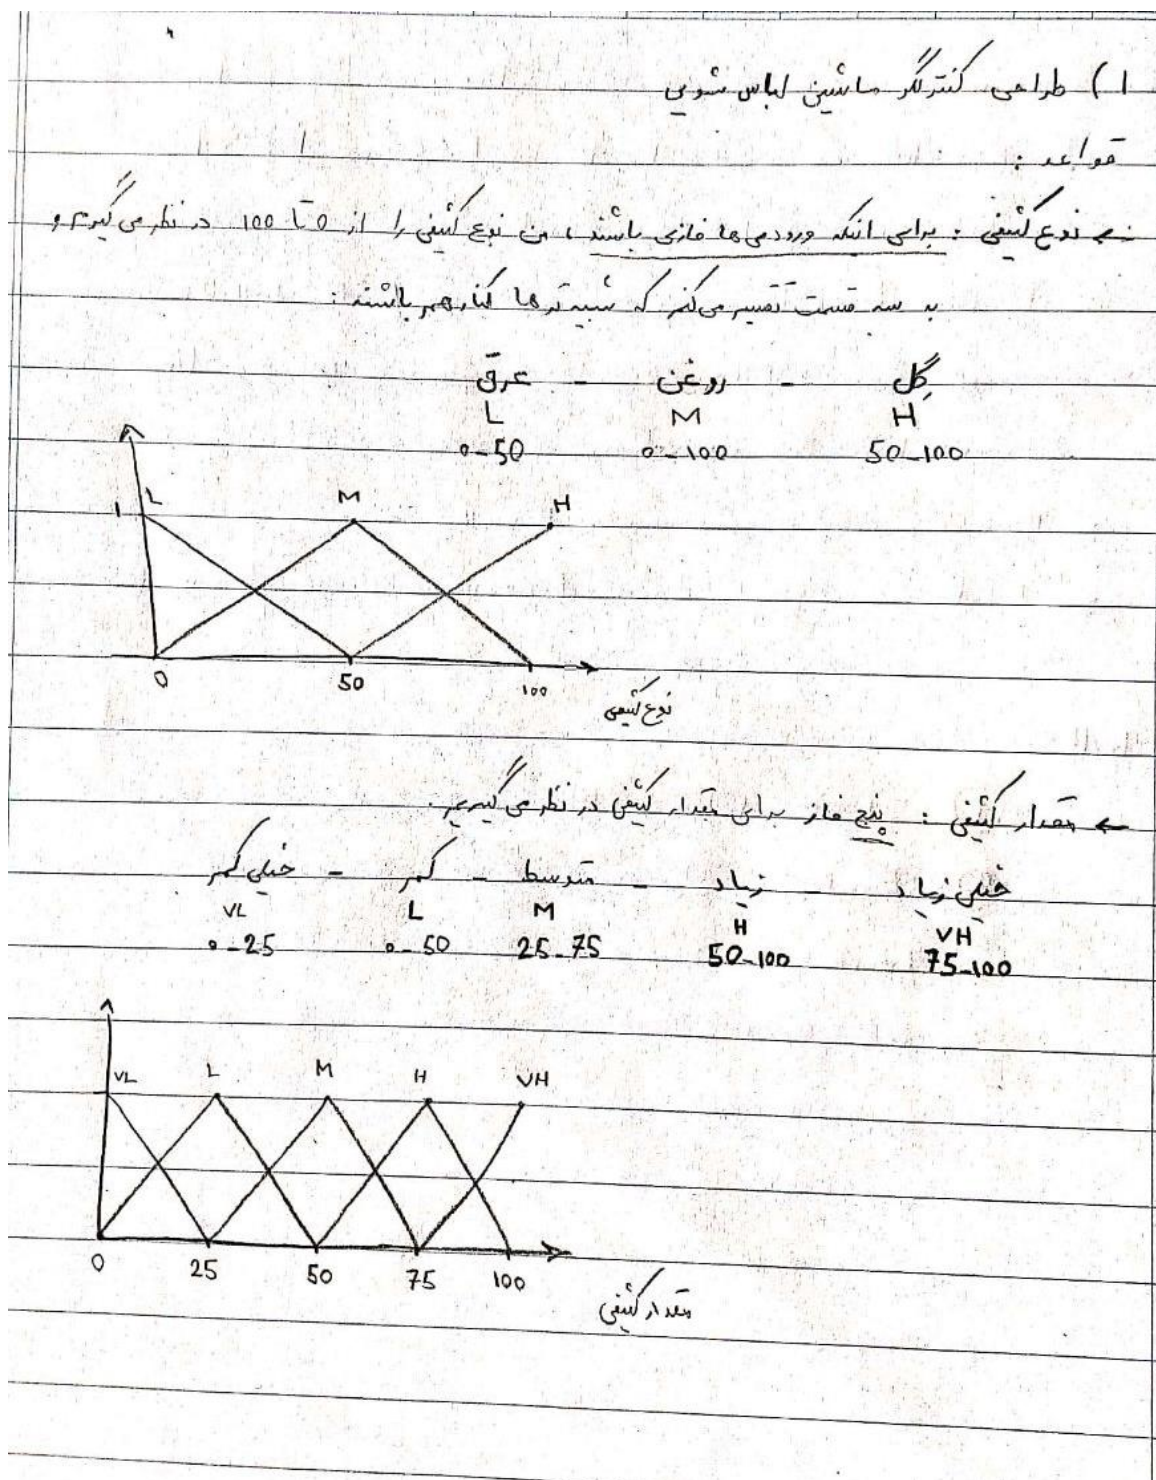 ۱) طراحی کنترلگر ماشین لباس شویی
قواعد :
← نوع کثیفی : برای اینکه ورودی ها فازی باشند ، من نوع کثیفی را از 0 تا 100 در نظر می گیرم و
به سه قسمت تقسیم می کنم که شبیه تر ها کنار هم باشند :
گِل - روغن - عرق
L M H
0-50 0-100 50-100
1 L M H
0 50 100
نوع کثیفی
← مقدار کثیفی : پنج فاز برای مقدار کثیفی در نظر می گیریم.
خیلی زیاد - زیاد - متوسط - کم - خیلی کم
VL L M H VH
0-25 0-50 25-75 50-100 75-100
VL L M H VH
0 25 50 75 100
مقدار کثیفی